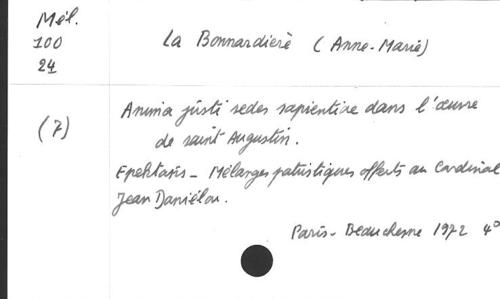 Mél.
100
24
La Bonnardière (Anne-Marie)
(7)
Anima justi sedes sapientiae dans l'œuvre
de saint Augustin.
Epektasis - Mélanges patristiques offerts au Cardinal
Jean Daniélou.
Paris - Beauchesne 1972 4°